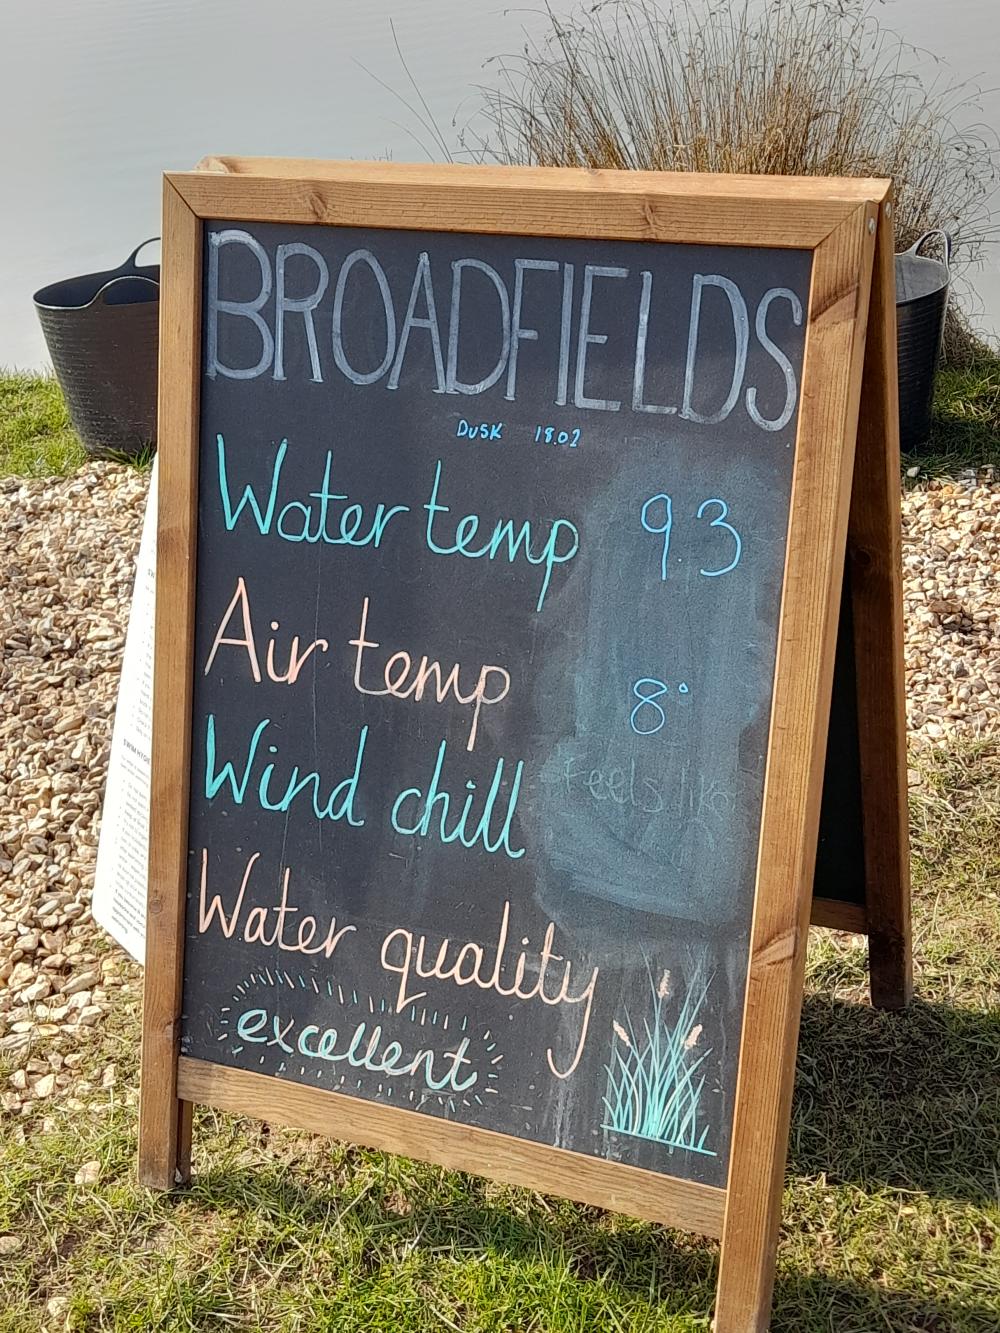 BROADFIELDS
DUSK 18.02
Water temp 9.3
Air temp 8°
Wind chill Feels like
Water quality
excellent